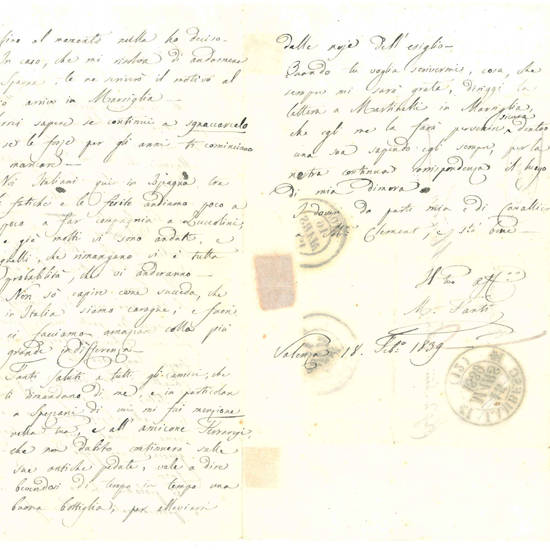 fino al momento nulla ho deciso.
In caso, che mi risolva di andarmene
Spagna, te ne scriverò il motivo al
arrivo in Marsiglia
sapere se continui a sgnaccarcelo
se le forze per gli anni ti cominciano
mancare
Noi Italiani qui in Ispagna tra
le fatiche e le ferite andiamo poco a
poco a far compagnia a Lucicolini;
e già molti vi sono andati, e
quelli, che rimangono vi è tutta
probabilità, che vi anderanno
Non so capire come succeda, che
in Italia siamo carogne, e fuori
ci facciamo ammazzar colla più
grande indifferenza
Tanti saluti a tutti gli amici, che
ti dimandano di me, e in particolar
a Speziani di cui mi fai menzione
nella tua, e all' amicone
che non dubito continuerà sulle
sue antiche pedate, vale a dire
bevendosi di tempo in tempo una
buona bottiglia, per alleviarsi
dalle noje dell' esiglio
Quando tu voglia scrivermi, cosa, che
sempre mi sarà grata, dirigi la
lettera a Martinelli in Marsiglia,
che egli me la farà pervenir sicura dentro
una sua sapendo egli sempre, per la
nostra continua corrispondenza il luogo
di mia dimora
Addio da parte mia e di Cavallini
Clement, e sta bene
Il tuo aff.mo
M. Fanti
Valenza 18. Feb.o 1839
MARS
1839
(15)